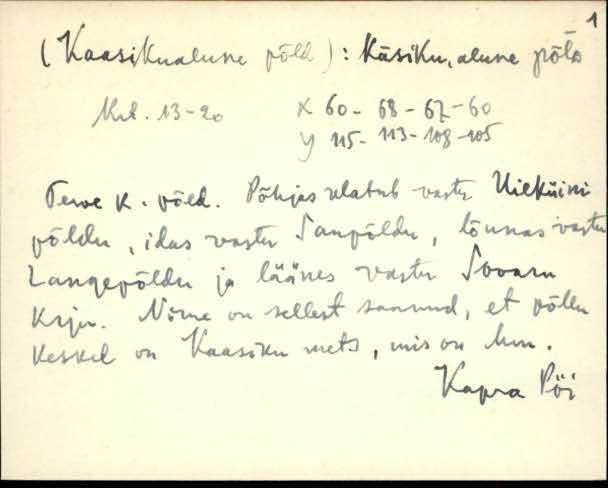 1
(Kaasikualune põld): Kāsiku,alune põlᴅ
Krt. 13-20 X 60-68-67-60
y 115-113-108-105
Terve k. põld. Põhjas ulatub vastu Uieküini
põldu, idas vastu Saupõldu, lõunas vastu
Langepõldu ja läänes vastu Sooaru
karju. Nime on sellest saanud, et põllu
keskel on Kaasiku mets, mis on
Kapra Pöi